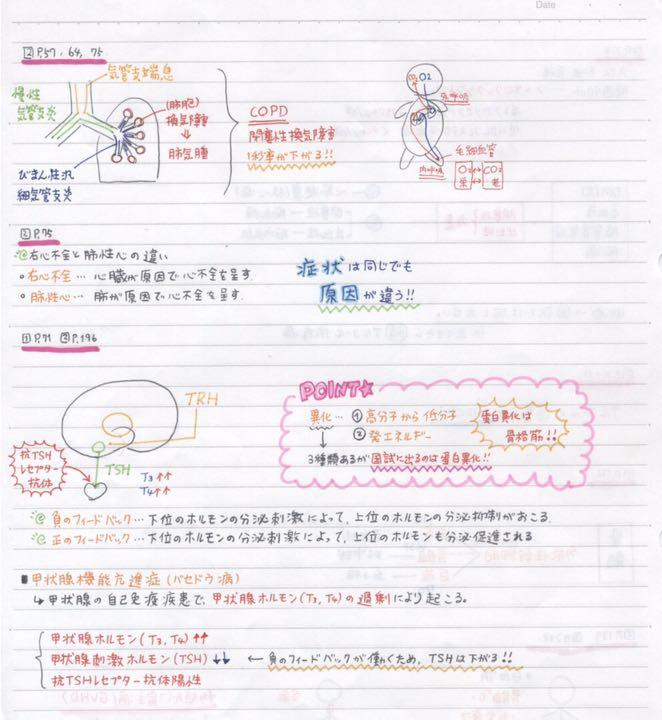 Date
②P.57・64, 75
気管支喘息
慢性
気管支炎
(肺胞)
換気障害
↓
肺気腫
びまん性汎
細気管支炎
COPD
閉塞性換気障害
1秒率が下がる!!
O₂
外呼吸
毛細血管
内呼吸
O₂ ↔ CO₂
栄 ↔ 老
②P.75
右心不全と肺性心の違い
右心不全… 心臓が原因で心不全を呈す.
肺性心… 肺が原因で心不全を呈す.
症状は同じでも
原因が違う!!
①P.71 ②P.196
TRH
抗TSH
レセプター
抗体
TSH
T₃↑↑
T₄↑↑
POINT☆
異化… ①高分子から低分子
②発エネルギー
↓
3種類あるが国試に出るのは蛋白異化!!
蛋白異化は
骨格筋!!
負のフィードバック…下位のホルモンの分泌刺激によって、上位のホルモンの分泌抑制がおこる.
正のフィードバック…下位のホルモンの分泌刺激によって、上位のホルモンも分泌促進される
■甲状腺機能亢進症(バセドウ病)
↳甲状腺の自己免疫疾患で、甲状腺ホルモン(T₃, T₄)の過剰により起こる。
甲状腺ホルモン(T₃, T₄)↑↑
甲状腺刺激ホルモン(TSH)↓↓ ← 負のフィードバックが働くため、TSHは下がる!!
抗TSHレセプター抗体陽性